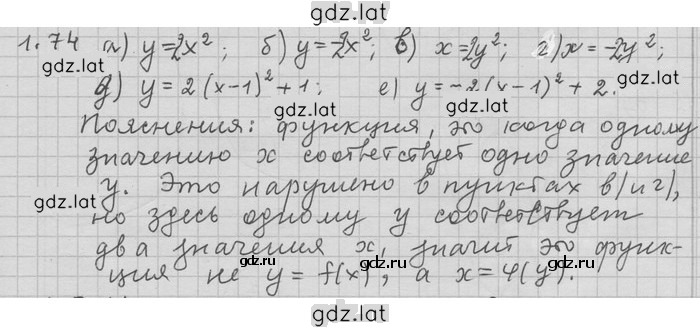 gdz.lat
1.74 а) y=2x²; б) y=-2x²; в) x=2y²; г) x=-2y²;
gdz.lat gdz.lat
д) y=2(x-1)²+1; е) y=-2(x-1)²+2.
gdz.lat gdz.lat
Пояснения: функция, это когда одному
значению x соответствует одно значение
y. Это нарушено в пунктах в) и г),
gdz.lat gdz.lat
но здесь одному y соответствует
два значения x, значит это функ-
gdz.lat
ция не y=f(x), а x=φ(y).
gdz.lat